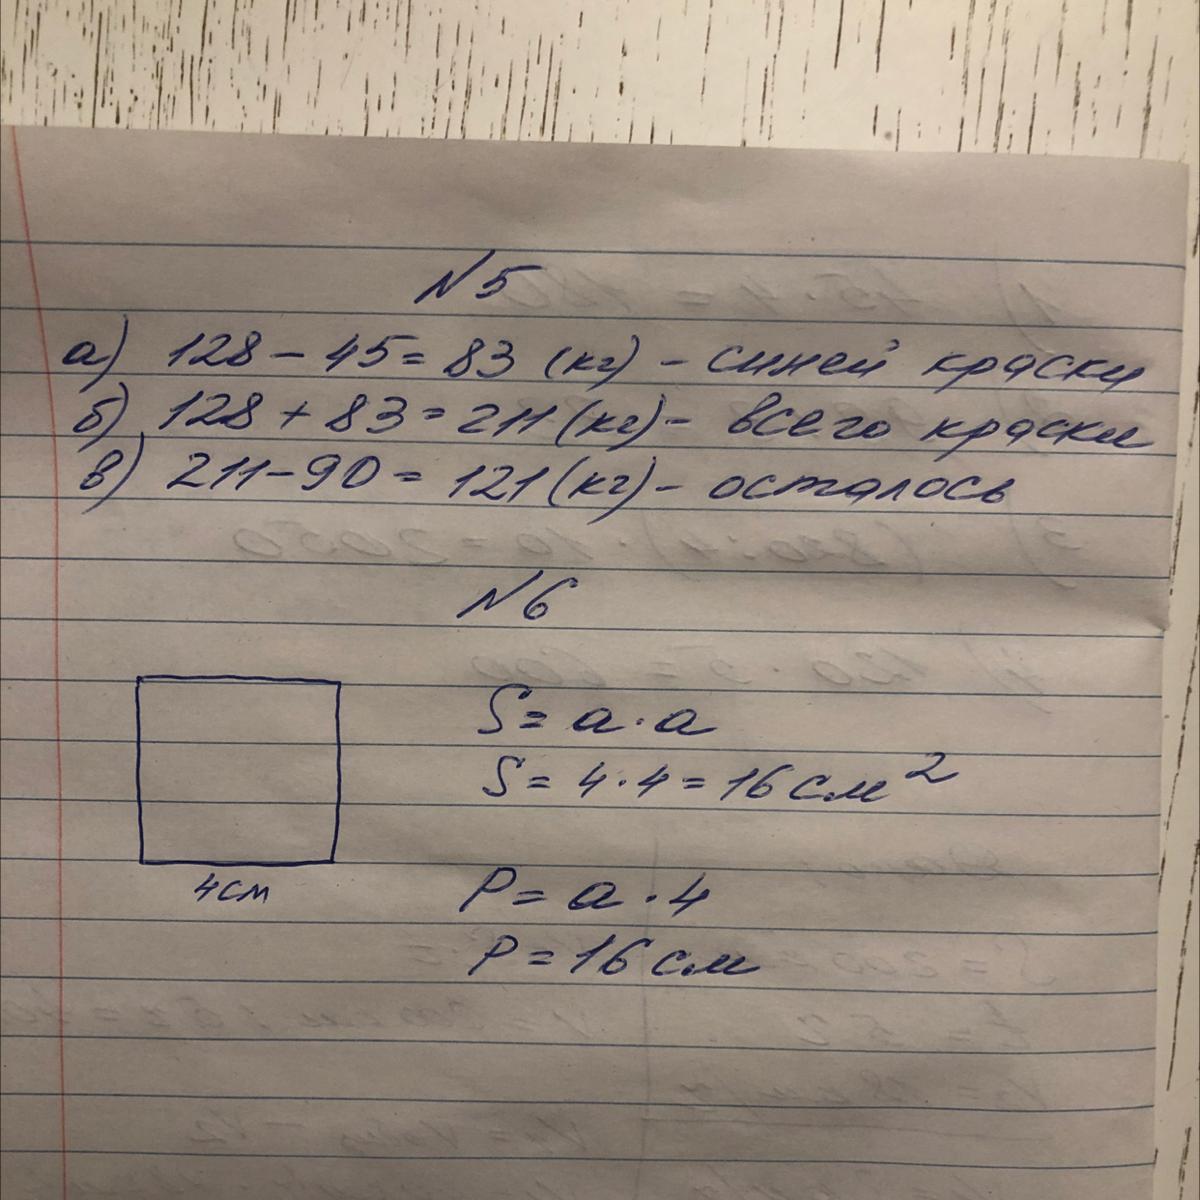 N5
а) 128 - 45 = 83 (кг) - синей краски
б) 128 + 83 = 211 (кг) - всего краски
в) 211 - 90 = 121 (кг) - осталось
N6
S = a · a
S = 4 · 4 = 16 см²
4 см
P = a · 4
P = 16 см